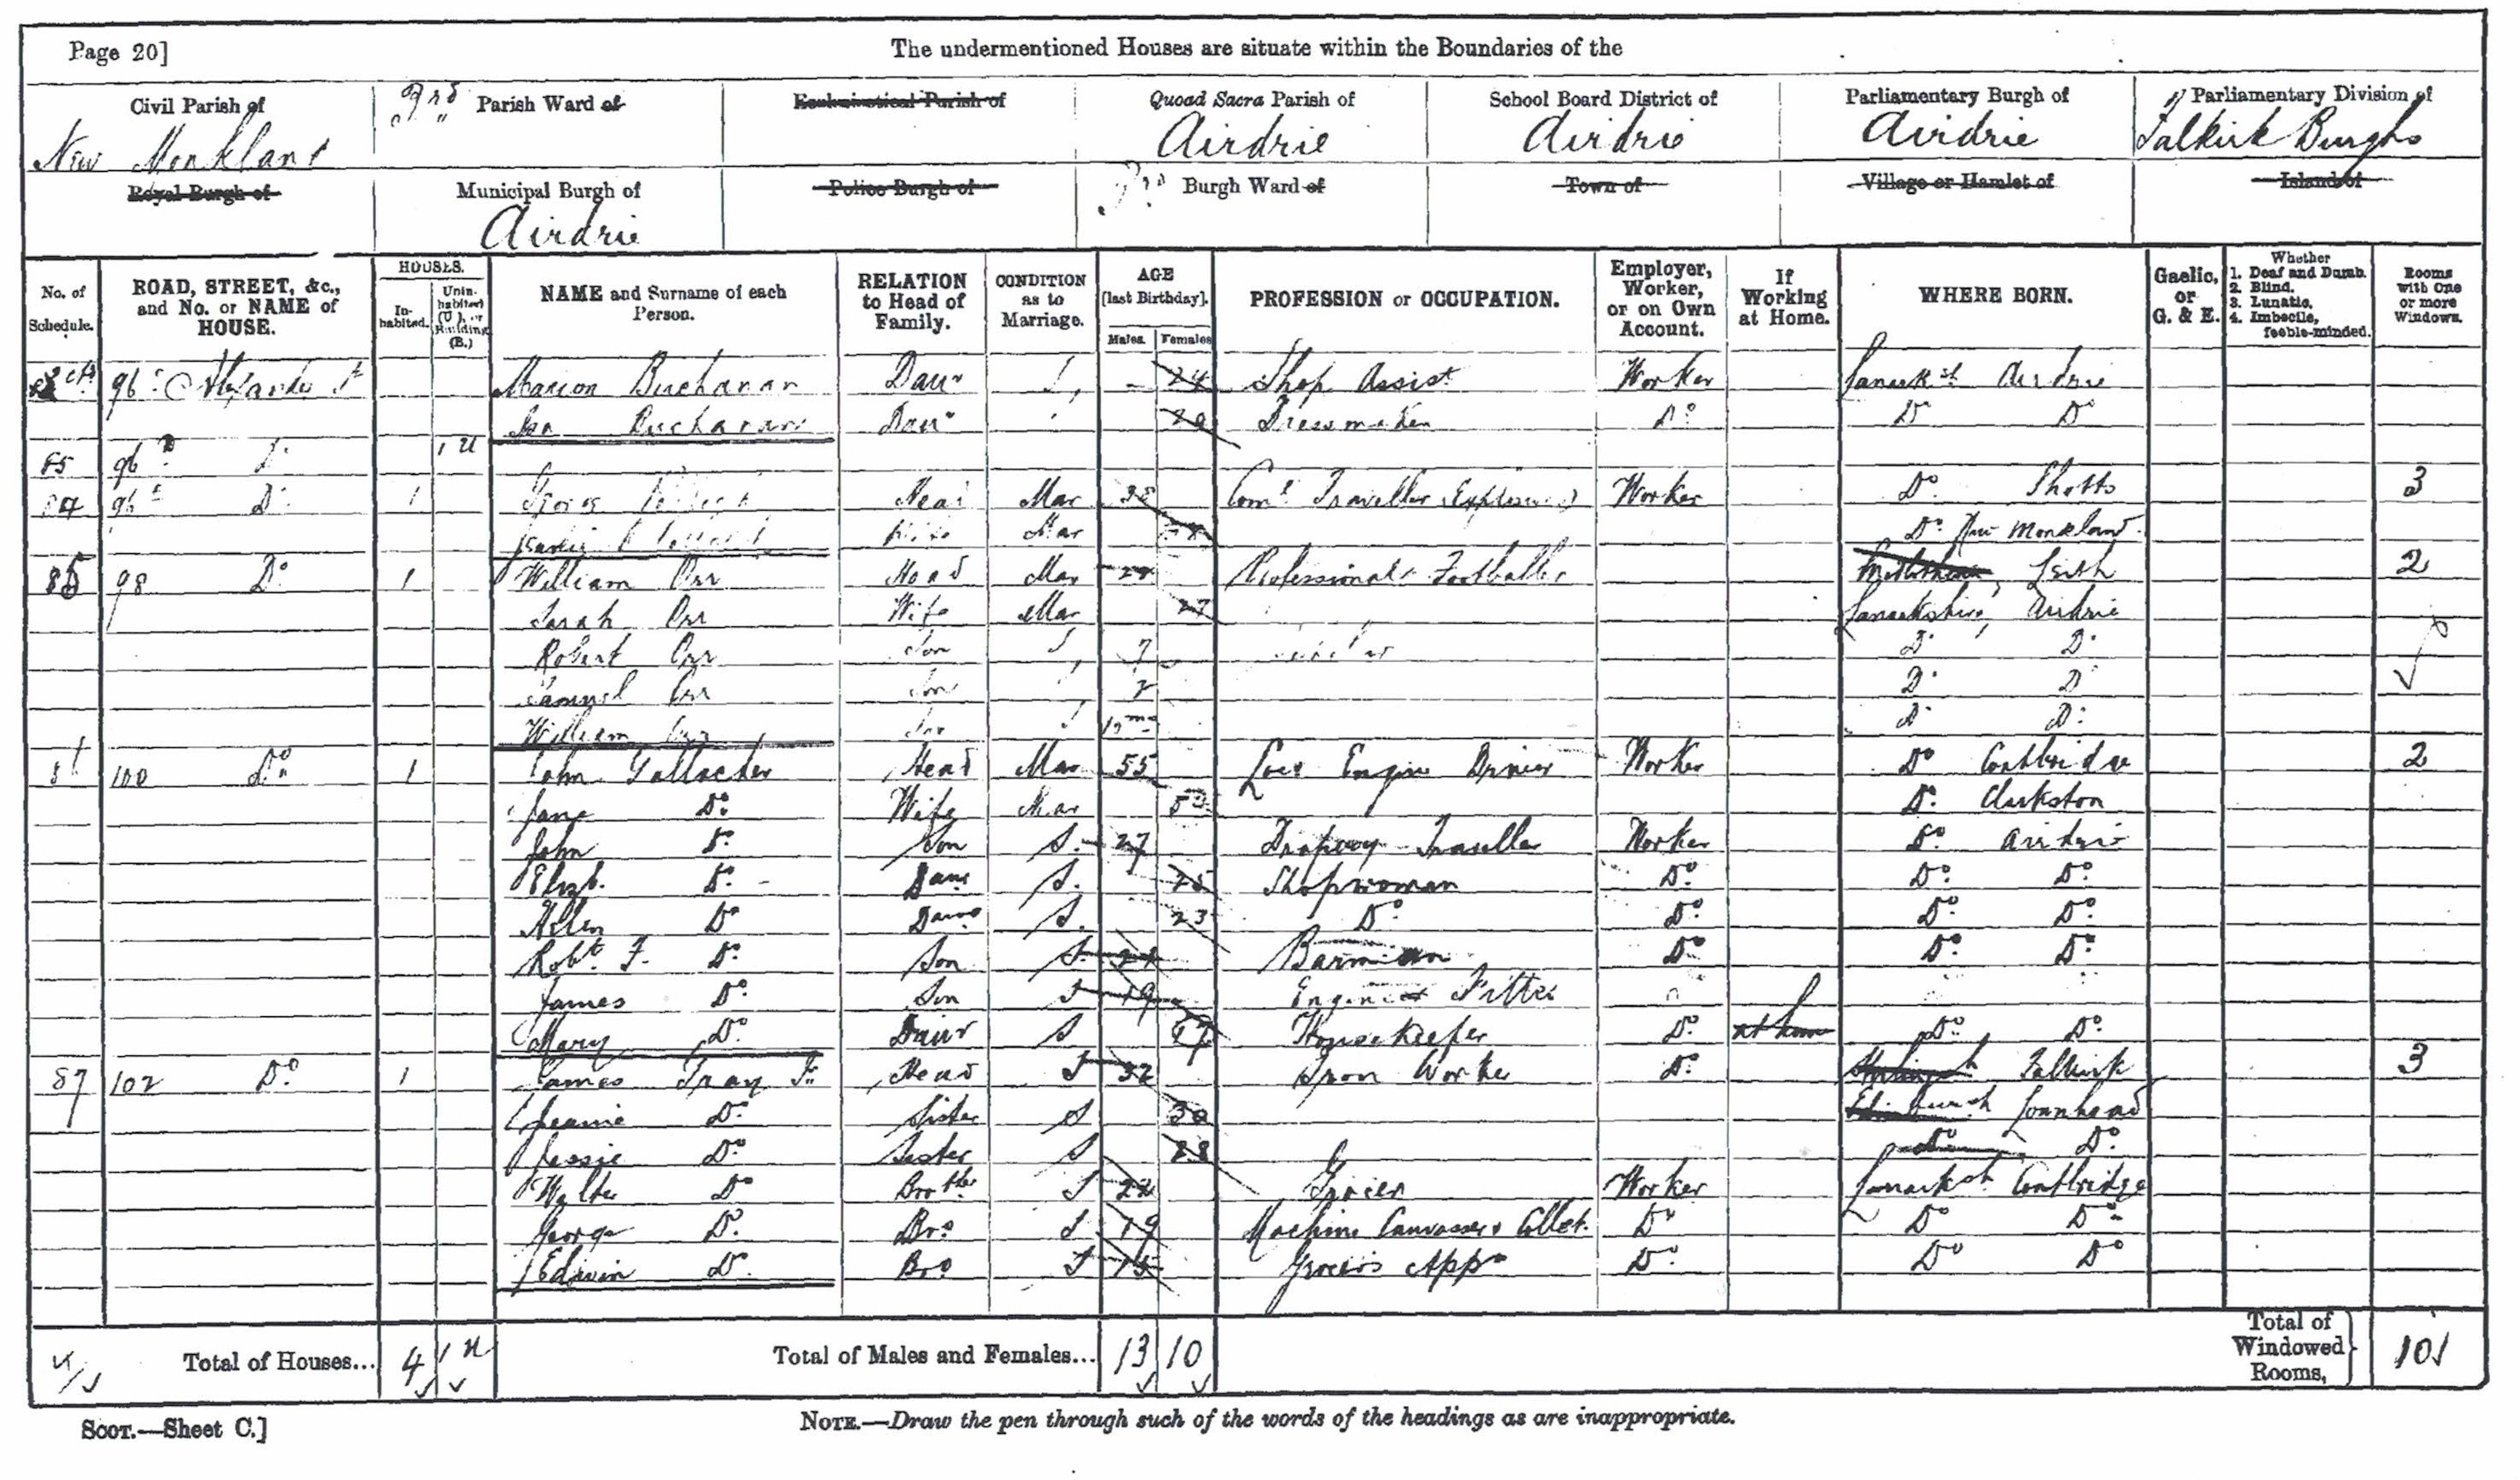 Page 20]
The undermentioned Houses are situate within the Boundaries of the
Civil Parish of
3rd Parish Ward of
Ecclesiastical Parish of
Quoad Sacra Parish of
School Board District of
Parliamentary Burgh of
Parliamentary Division of
New Monkland
Airdrie
Airdrie
Airdrie
Falkirk Burghs
Royal Burgh of
Municipal Burgh of
Police Burgh of
3rd Burgh Ward of
Town of
Village or Hamlet of
Island of
Airdrie
No. of Schedule.
ROAD, STREET, &c., and No. or NAME of HOUSE.
HOUSES.
Inhabited.
Uninhabited (U), or Building (B.)
NAME and Surname of each Person.
RELATION to Head of Family.
CONDITION as to Marriage.
AGE [last Birthday].
Males.
Females
PROFESSION or OCCUPATION.
Employer, Worker, or on Own Account.
If Working at Home.
WHERE BORN.
Gaelic, or G. & E.
Whether
1. Deaf and Dumb.
2. Blind.
3. Lunatic.
4. Imbecile, feeble-minded.
Rooms with One or more Windows.
96 Alexander St Marion Buchanan Daur S, 24 Shop Assist Worker Lanarksh Airdrie
Isa Buchanan Daur 20 Dressmaker Do Do Do
96 Do 1 U
84 96 Do 1 George Head Mar 38 Coml Traveller Worker Do Shotts 3
Wife Mar Do New Monkland
85 98 Do 1 William Orr Head Mar 27 Professional Footballer Leith 2
Sarah Orr Wife Mar 27 Lanarkshire, Airdrie
Robert Orr Son S, 7 Do Do
Samuel Orr Son 2 Do Do
William Orr Son S Do Do
86 100 Do 1 John Gallacher Head Mar 55 Loco Engine Driver Worker Do Coatbridge 2
Jane Do Wife Mar Do Clarkston
John Do Son S. 27 Drapery Traveller Worker Do Airdrie
Elizb. Do Daur S. 25 Shopwoman Do Do Do
Hellen Do Daur S. 23 Do Do Do Do
Robt. F. Do Son S 21 Barman Do Do Do
James Do Son S 19 Engine Fitter
Mary Do Daur S 17 Housekeeper Do at home Do Do
87 102 Do 1 James Head S 32 Iron Worker Do Falkirk 3
Jeanie Do Sister S 30 Edinburgh Loanhead
Jessie Do Sister S 28 Do Do
Walter Do Brother S 22 Grocer Worker Lanarksh Coatbridge
George Do Bro S 19 Machine Canvasser & Collet. Do Do Do
Edwin Do Bro S 15 Grocers App Do Do Do
Total of Houses... 4 1 U
Total of Males and Females... 13 10
Total of Windowed Rooms, 10
SCOT.—Sheet C.]
NOTE.—Draw the pen through such of the words of the headings as are inappropriate.